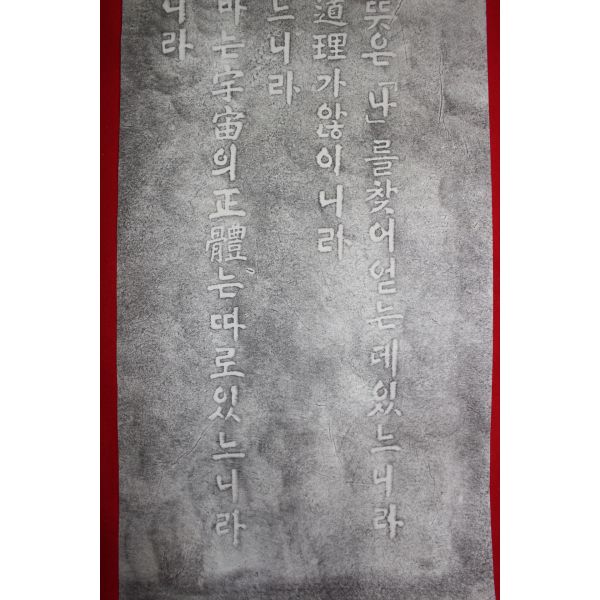 뜻은 「나」를찾어얻는데있느니라
道理가않이니라
느니라
바는宇宙의正體는따로있느니라
니라